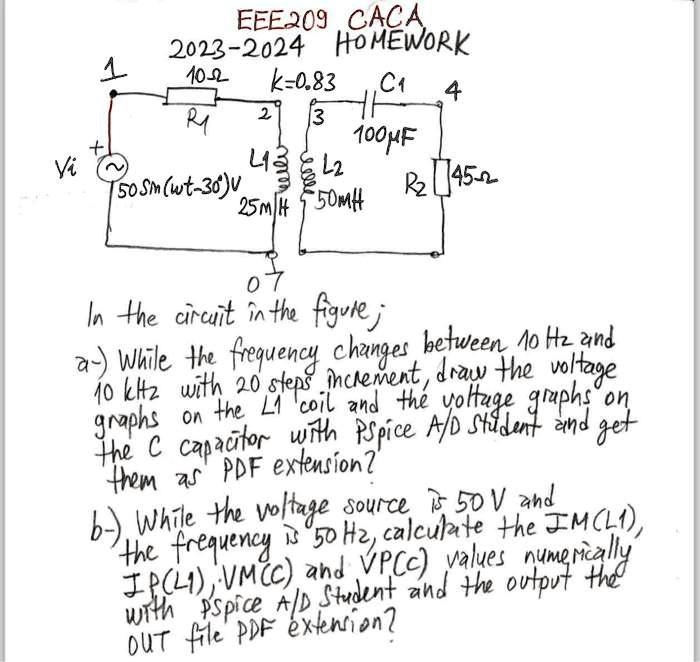 EEE209 CACA
2023-2024 HOMEWORK
1
10Ω
K=0.83
C1
4
R1
2
3
100µF
+
Vi
~
L1
L2
R2
45Ω
50 Sin(wt-30°)V
25mH
50mH
0
In the circuit in the figure;
a-) While the frequency changes between 10 Hz and
10 kHz with 20 steps increment, draw the voltage
graphs on the L1 coil and the voltage graphs on
the C capacitor with PSpice A/D Student and get
them as PDF extension?
b-) While the voltage source is 50 V and
the frequency is 50 Hz, calculate the IM(L1),
IP(L1), VM(C) and VP(C) values numerically
with PSpice A/D Student and the output the
OUT file PDF extension?